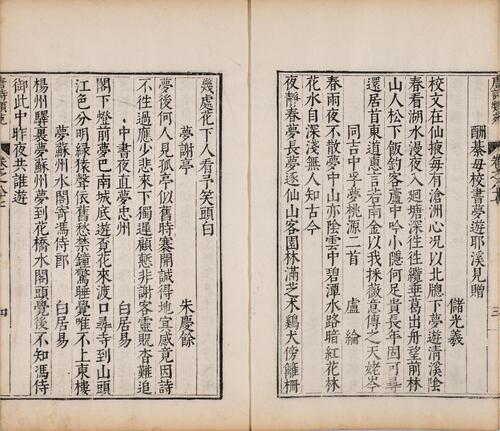 酬綦毋校書夢遊耶溪見贈 儲光羲
校文在仙掖每有滄洲心况以北牕下夢遊清溪陰
春看湖水漫夜入迴塘深往往纜垂葛出舟望前林
山人松下飯釣客蘆中吟小隱何足貴長年固可尋
還居首東道惠言若南金以我採薇意傳之天姥岑
同吉中孚夢桃源二首 盧綸
春雨夜不散夢中山亦陰雲中碧潭水路暗紅花林
花水自深淺無人知古今
夜靜春夢長夢逐仙山客園林滿芝朮雞犬傍籬柵
幾處花下人看予笑頭白
夢謝亭 朱慶餘
夢後何人見孤亭似舊時開誠得地宜感竟因詩
不往過應少悲來下獨遲顧慙非謝客靈貺杳難追
中書夜直夢忠州 白居易
閣下燈前夢巴南城底遊覔花來渡口尋寺到山頭
江色分明綠猿聲依舊愁禁鐘驚睡覺唯不上東樓
夢蘇州水閣寄馮侍郎 白居易
楊州驛裏夢蘇州夢到花橋水閣頭覺後不知馮侍
御此中昨夜共誰遊
四